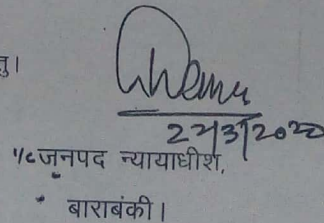 तु।
22/3/2022
I/c जनपद न्यायाधीश,
बाराबंकी।